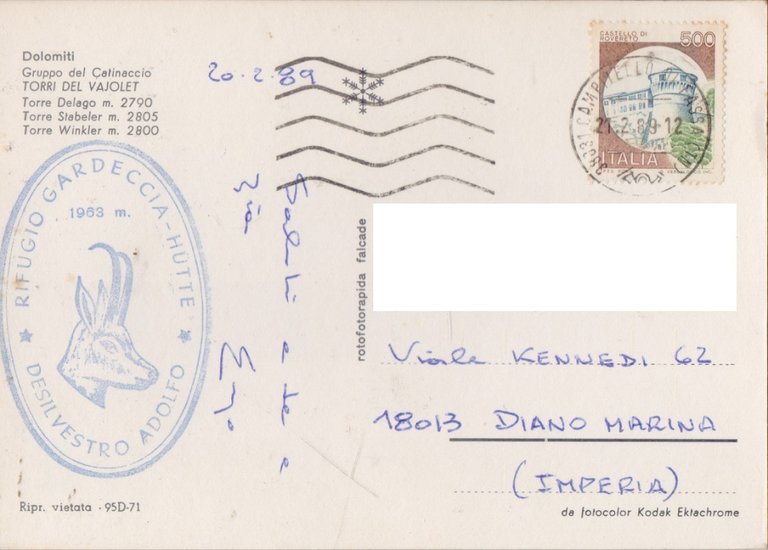 Dolomiti
Gruppo del Catinaccio
TORRI DEL VAJOLET
Torre Delago m. 2790
Torre Stabeler m. 2805
Torre Winkler m. 2800
20.2.89
CASTELLO DI ROVERETO
500
21.2.89-12
ITALIA
RIFUGIO GARDECCIA-HÜTTE
1963 m.
DESILVESTRO ADOLFO
Saluti a te e
Zia
rotofotorapida falcade
Viale KENNEDI 62
18013 DIANO MARINA
(IMPERIA)
Ripr. vietata - 95D-71
da fotocolor Kodak Ektachrome